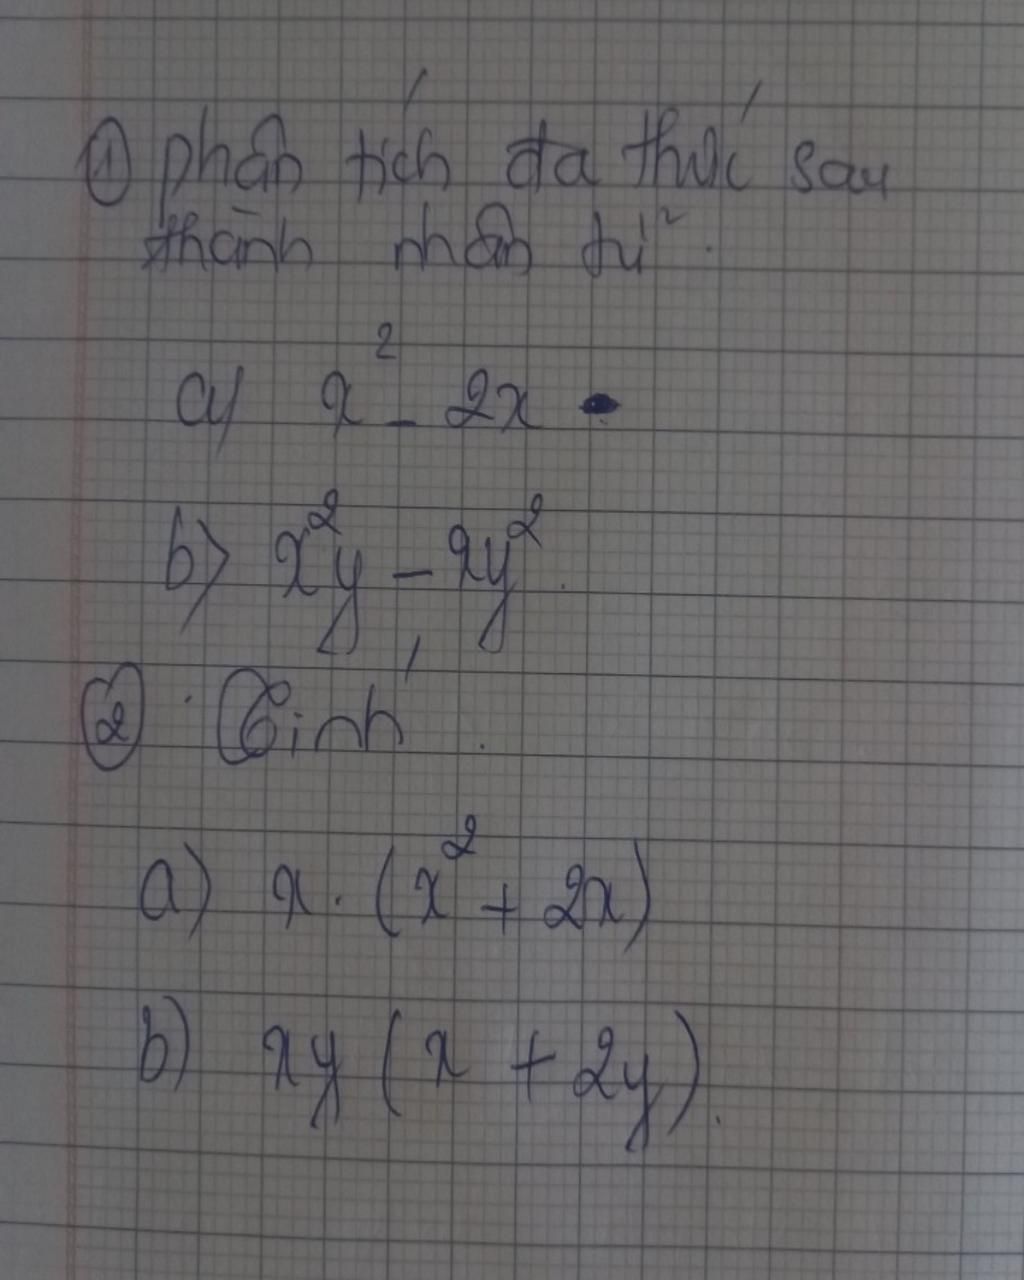 ① phân tích đa thức sau
thành nhân tử.
a) x² - 2x
b) x²y - xy².
② Tính.
a) x.(x² + 2x)
b) xy (x + 2y).